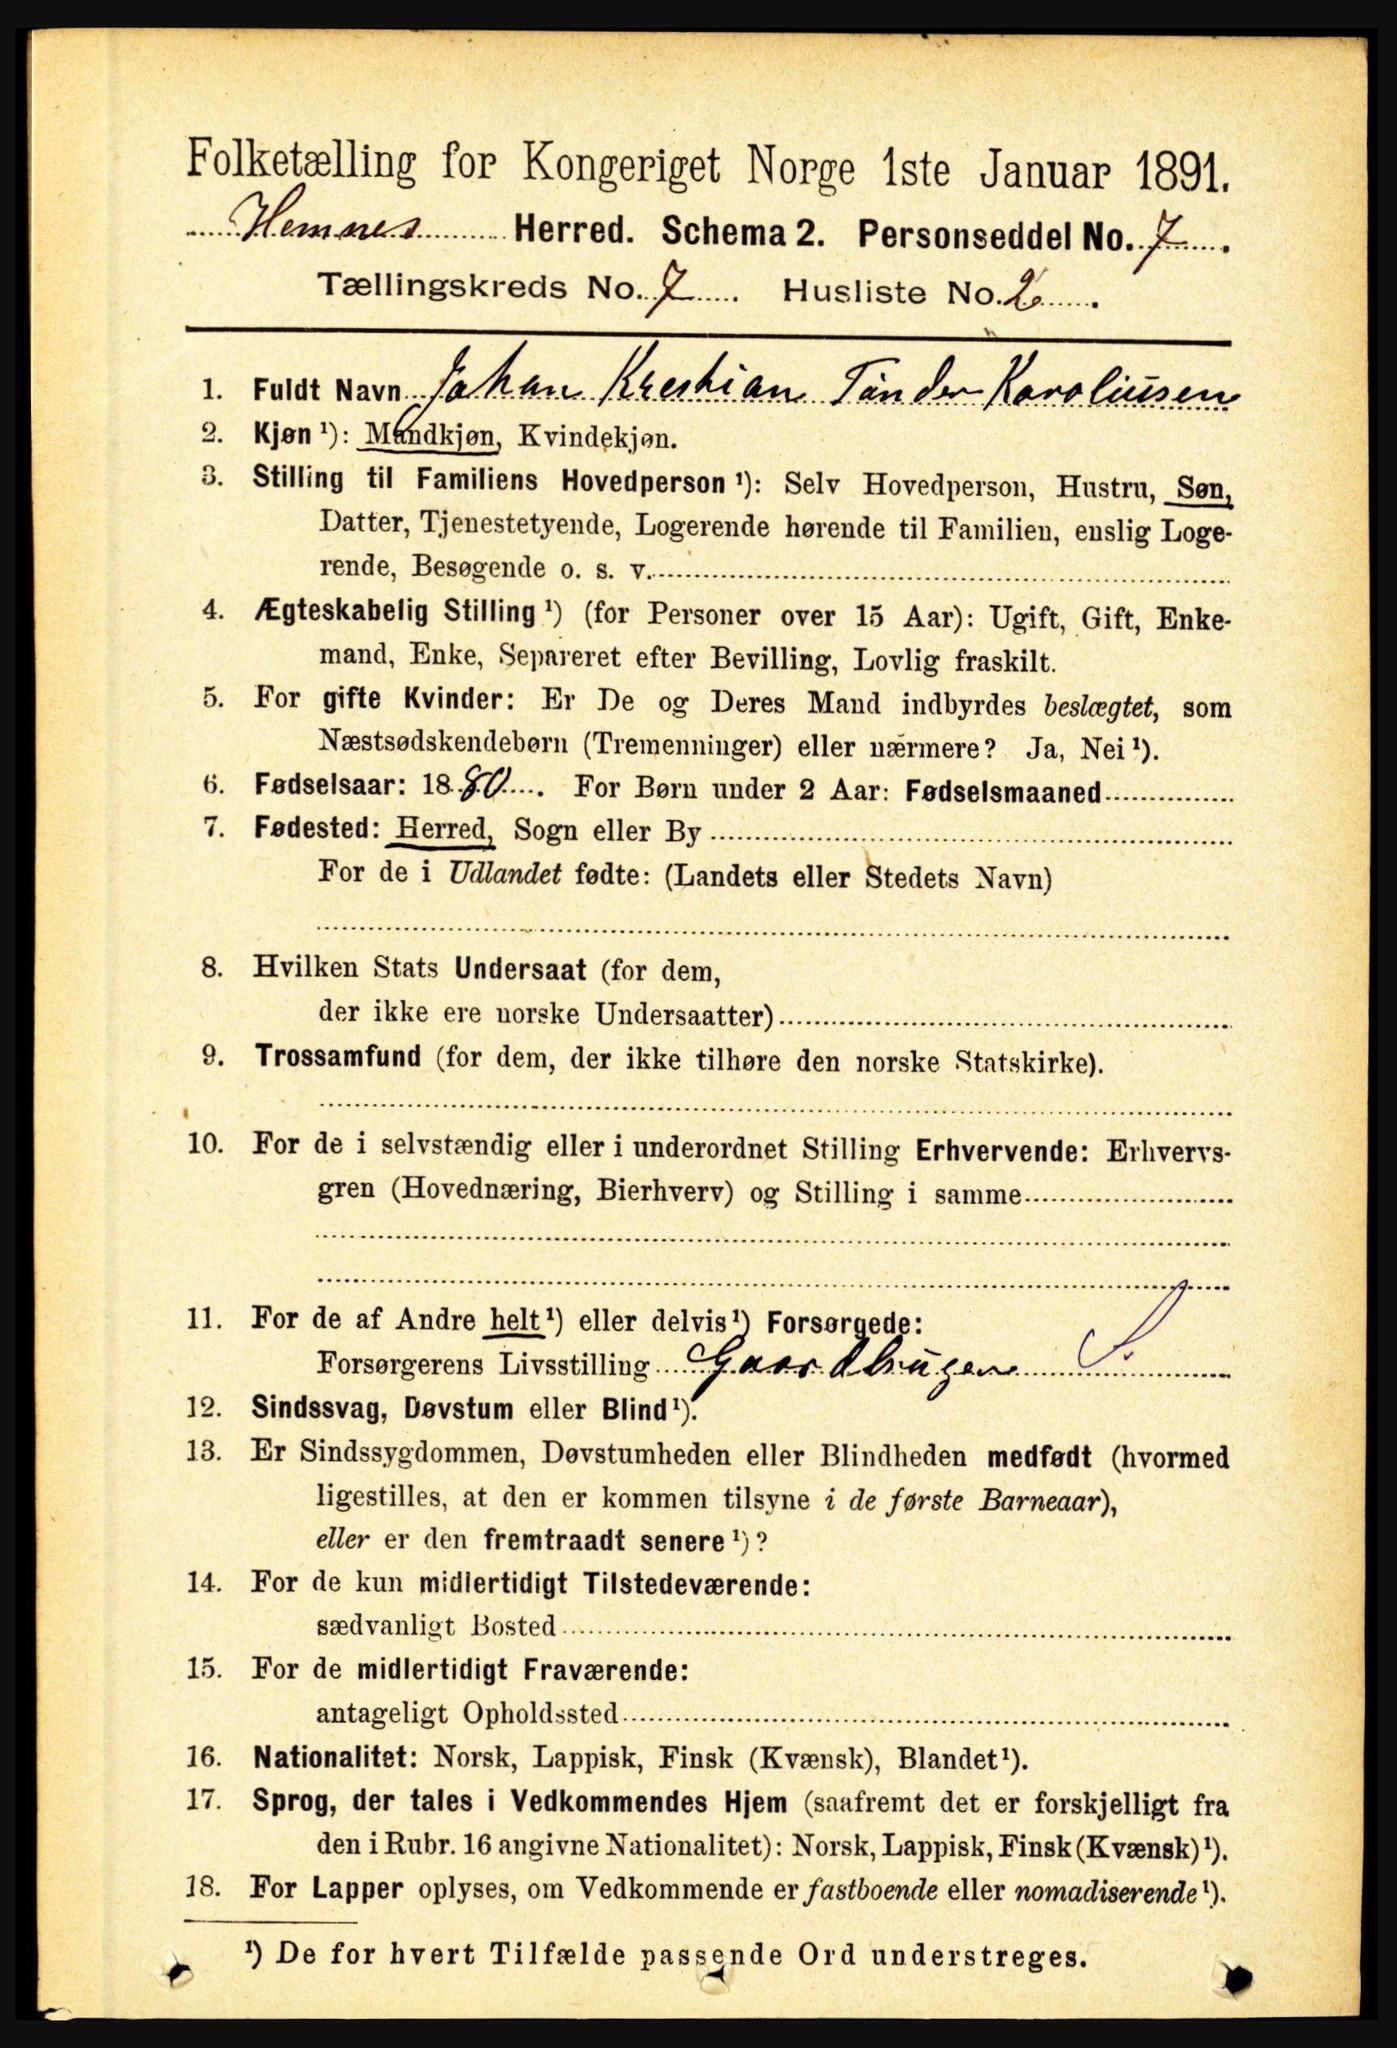 Folketælling for Kongeriget Norge 1ste Januar 1891.
Hemnes Herred. Schema 2. Personseddel No. 7.
Tællingskreds No. 7. Husliste No. 2.
1. Fuldt Navn Johan Krestian Tönder Karoliusen
2. Kjøn ¹): Mandkjøn, Kvindekjøn.
3. Stilling til Familiens Hovedperson ¹): Selv Hovedperson, Hustru, Søn,
Datter, Tjenestetyende, Logerende hørende til Familien, enslig Loge-
rende, Besøgende o. s. v.
4. Ægteskabelig Stilling ¹) (for Personer over 15 Aar): Ugift, Gift, Enke-
mand, Enke, Separeret efter Bevilling, Lovlig fraskilt.
5. For gifte Kvinder: Er De og Deres Mand indbyrdes beslægtet, som
Næstsødskendebørn (Tremenninger) eller nærmere? Ja, Nei ¹).
6. Fødselsaar: 1880. For Børn under 2 Aar: Fødselsmaaned
7. Fødested: Herred, Sogn eller By
For de i Udlandet fødte: (Landets eller Stedets Navn)
8. Hvilken Stats Undersaat (for dem,
der ikke ere norske Undersaatter)
9. Trossamfund (for dem, der ikke tilhøre den norske Statskirke).
10. For de i selvstændig eller i underordnet Stilling Erhvervende: Erhvervs-
gren (Hovednæring, Bierhverv) og Stilling i samme
11. For de af Andre helt ¹) eller delvis ¹) Forsørgede:
Forsørgerens Livsstilling Gaardbruger S.
12. Sindssvag, Døvstum eller Blind ¹).
13. Er Sindssygdommen, Døvstumheden eller Blindheden medfødt (hvormed
ligestilles, at den er kommen tilsyne i de første Barneaar),
eller er den fremtraadt senere ¹)?
14. For de kun midlertidigt Tilstedeværende:
sædvanligt Bosted
15. For de midlertidigt Fraværende:
antageligt Opholdssted
16. Nationalitet: Norsk, Lappisk, Finsk (Kvænsk), Blandet ¹).
17. Sprog, der tales i Vedkommendes Hjem (saafremt det er forskjelligt fra
den i Rubr. 16 angivne Nationalitet): Norsk, Lappisk, Finsk (Kvænsk) ¹).
18. For Lapper oplyses, om Vedkommende er fastboende eller nomadiserende ¹).
¹) De for hvert Tilfælde passende Ord understreges.